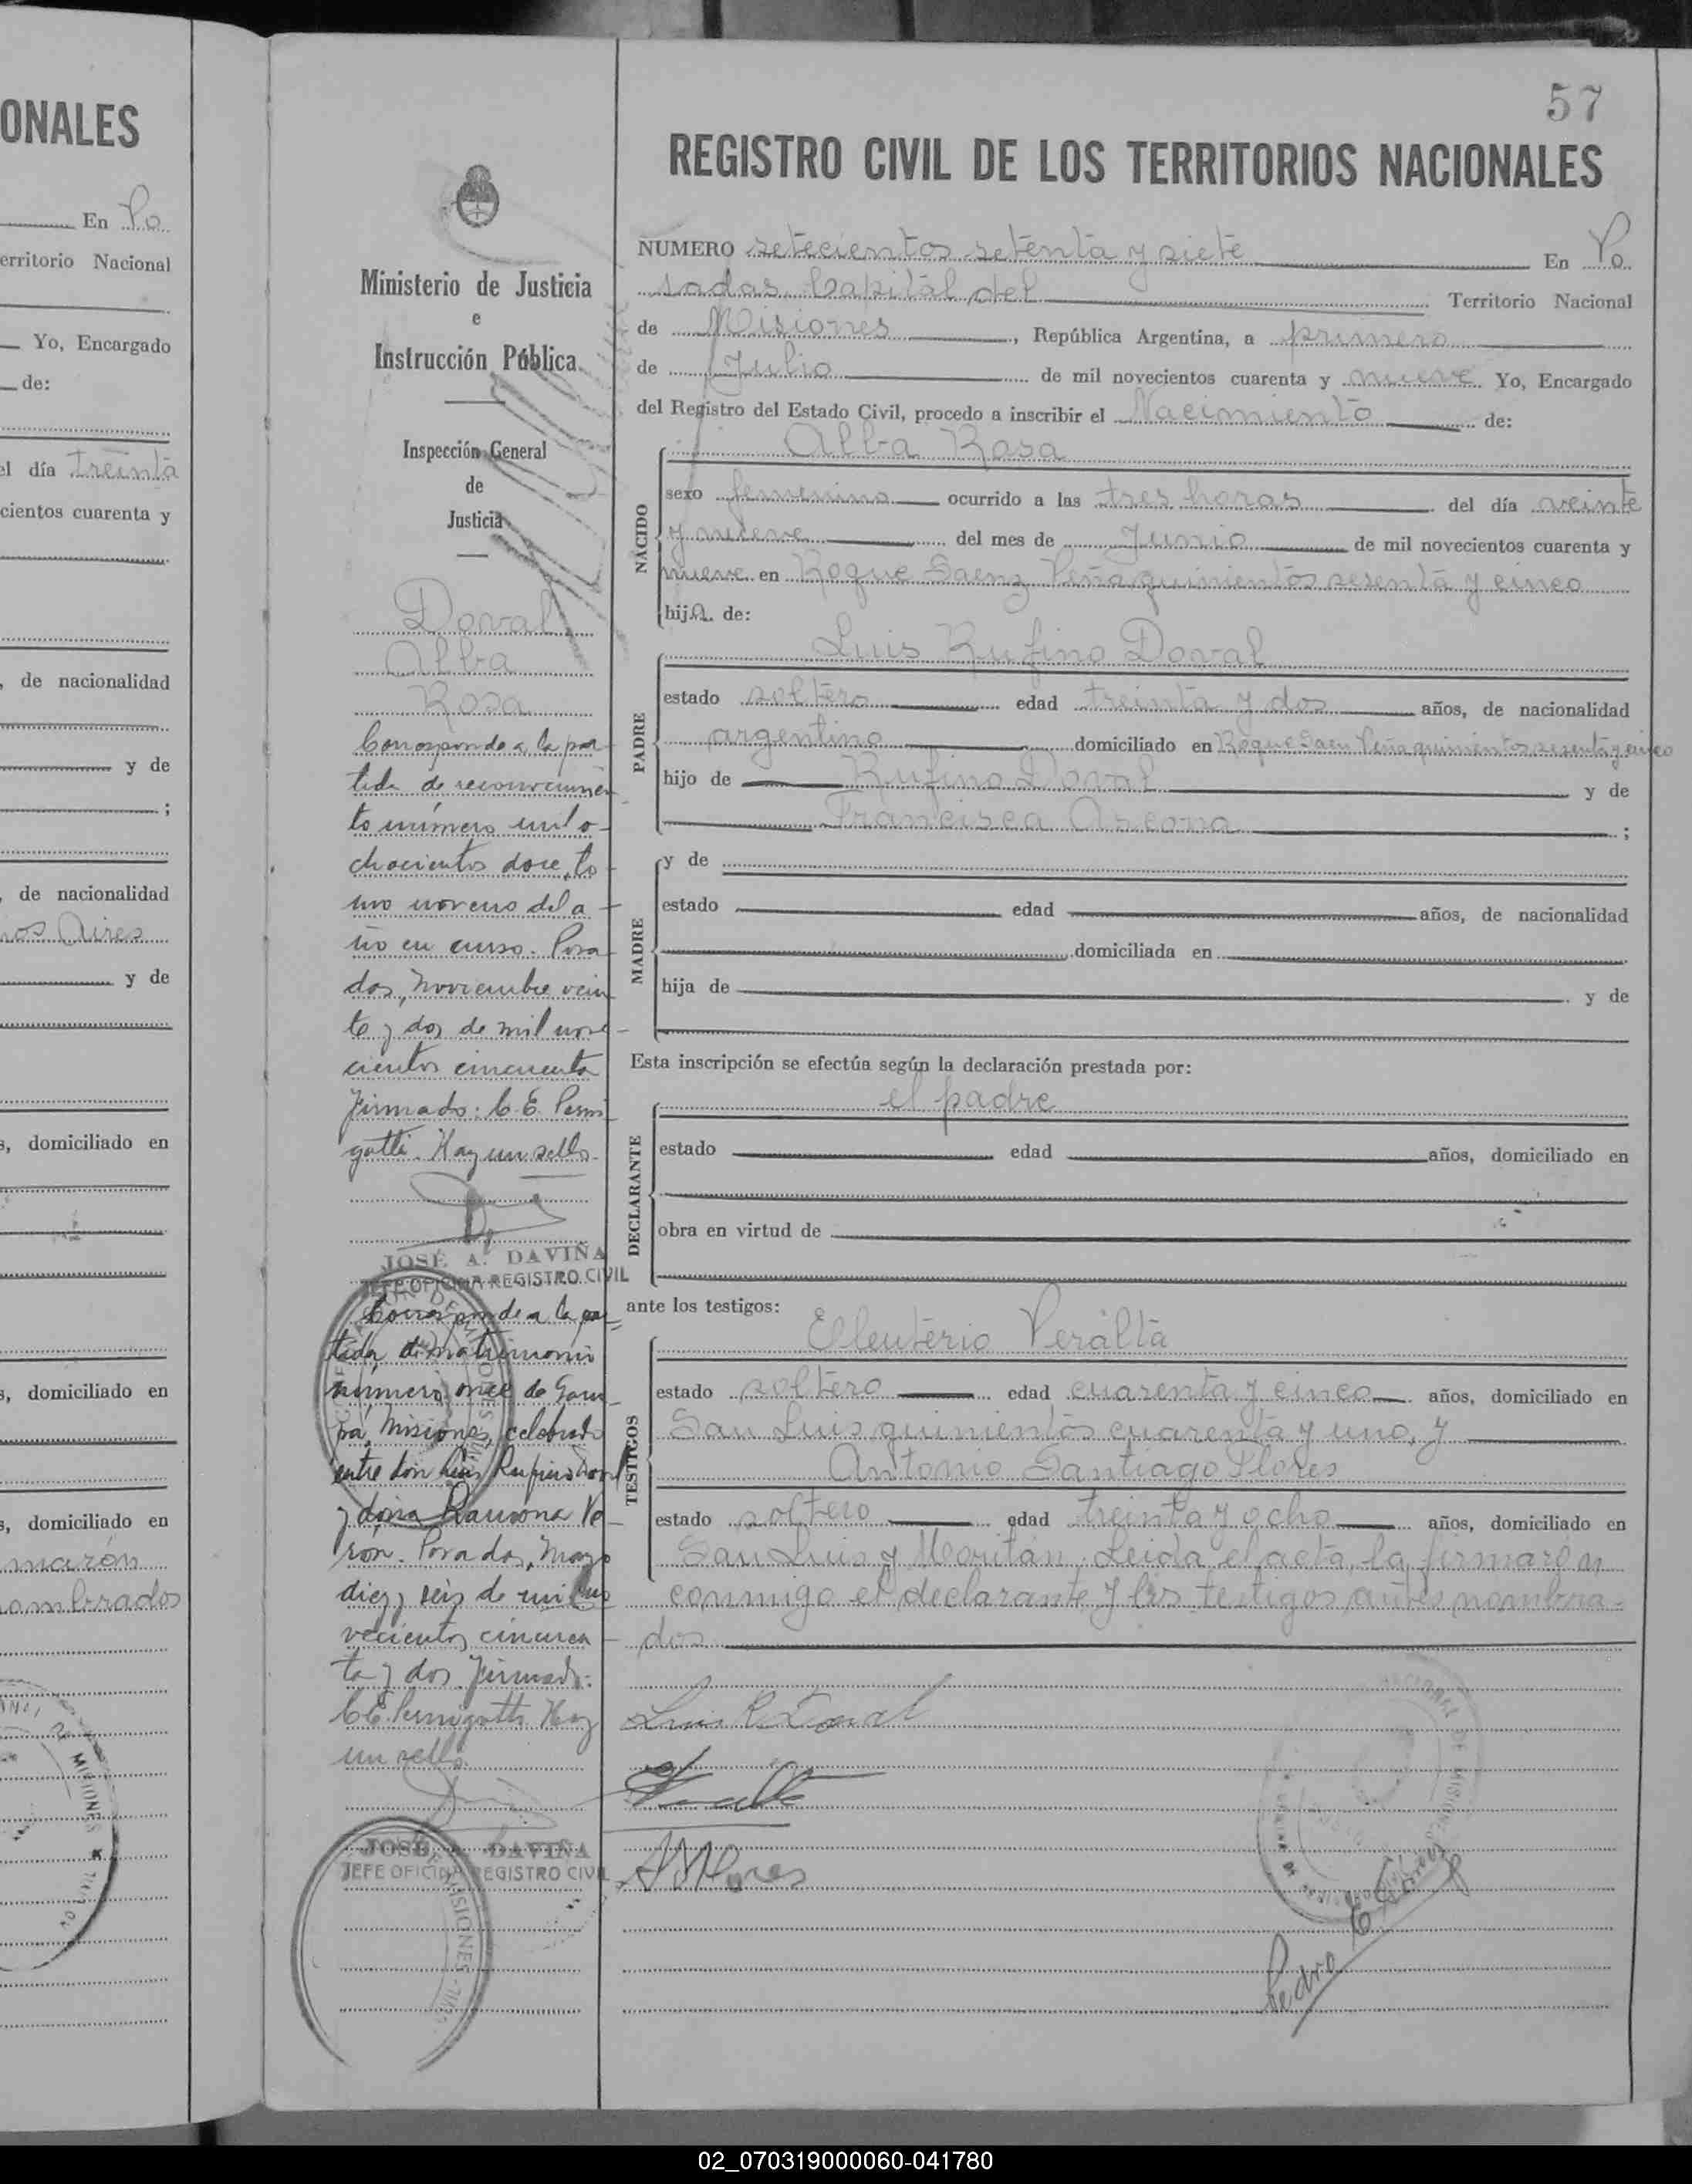 ONALES
En Po
erritorio Nacional
Yo, Encargado
de:
el día treinta
cientos cuarenta y
, de nacionalidad
y de
;
, de nacionalidad
nos Aires
y de
s, domiciliado en
s, domiciliado en
s, domiciliado en
marón
ombrados
57
REGISTRO CIVIL DE LOS TERRITORIOS NACIONALES
Ministerio de Justicia
e
Instrucción Pública
Inspección General
de
Justicia
Doval
Alba
Rosa
Corresponde a la par
tida de reconocimien
to número mil o
chocientos doce, to
mo noveno del a
ño en curso. Posa
das, Noviembre vein
te y dos de mil nove
cientos cincuenta
Firmado: C. E.
Hay un sello.
JOSÉ A. DAVIÑA
JEFE OFICINA REGISTRO CIVIL
Corresponde a la par
tida de matrimonio
número once de Garu
pá, Misiones, celebrado
entre don Luis Rufino Doval
y doña Ramona Ve
rón. Posadas, Mayo
diez y seis de mil no
vecientos cincuen
ta y dos. Firmado:
C. E. Hay
un sello.
JOSÉ A. DAVIÑA
JEFE OFICINA REGISTRO CIVIL
NUMERO setecientos setenta y siete En Po
sadas Capital del Territorio Nacional
de Misiones, República Argentina, a primero
de Julio de mil novecientos cuarenta y nueve Yo, Encargado
del Registro del Estado Civil, procedo a inscribir el Nacimiento de:
NACIDO
Alba Rosa
sexo femenino ocurrido a las tres horas del día veinte
y nueve del mes de Junio de mil novecientos cuarenta y
nueve en Roque Saenz Peña quinientos sesenta y cinco
hija de:
PADRE
Luis Rufino Doval
estado soltero edad treinta y dos años, de nacionalidad
argentino domiciliado en Roque Saen Peña quinientos sesenta y cinco
hijo de Rufino Doval y de
Francisca Ascona ;
MADRE
y de
estado edad años, de nacionalidad
domiciliada en
hija de y de
Esta inscripción se efectúa según la declaración prestada por:
DECLARANTE
el padre
estado edad años, domiciliado en
obra en virtud de
ante los testigos:
TESTIGOS
Elleuterio Peralta
estado soltero edad cuarenta y cinco años, domiciliado en
San Luis quinientos cuarenta y uno, y
Antonio Santiago Flores
estado soltero edad treinta y ocho años, domiciliado en
San Luis y Moritán. Leida el acta, la firmaron
conmigo el declarante y los testigos antes nombra-
dos
Luis R. Doval
Flores
Pedro
02_070319000060-041780